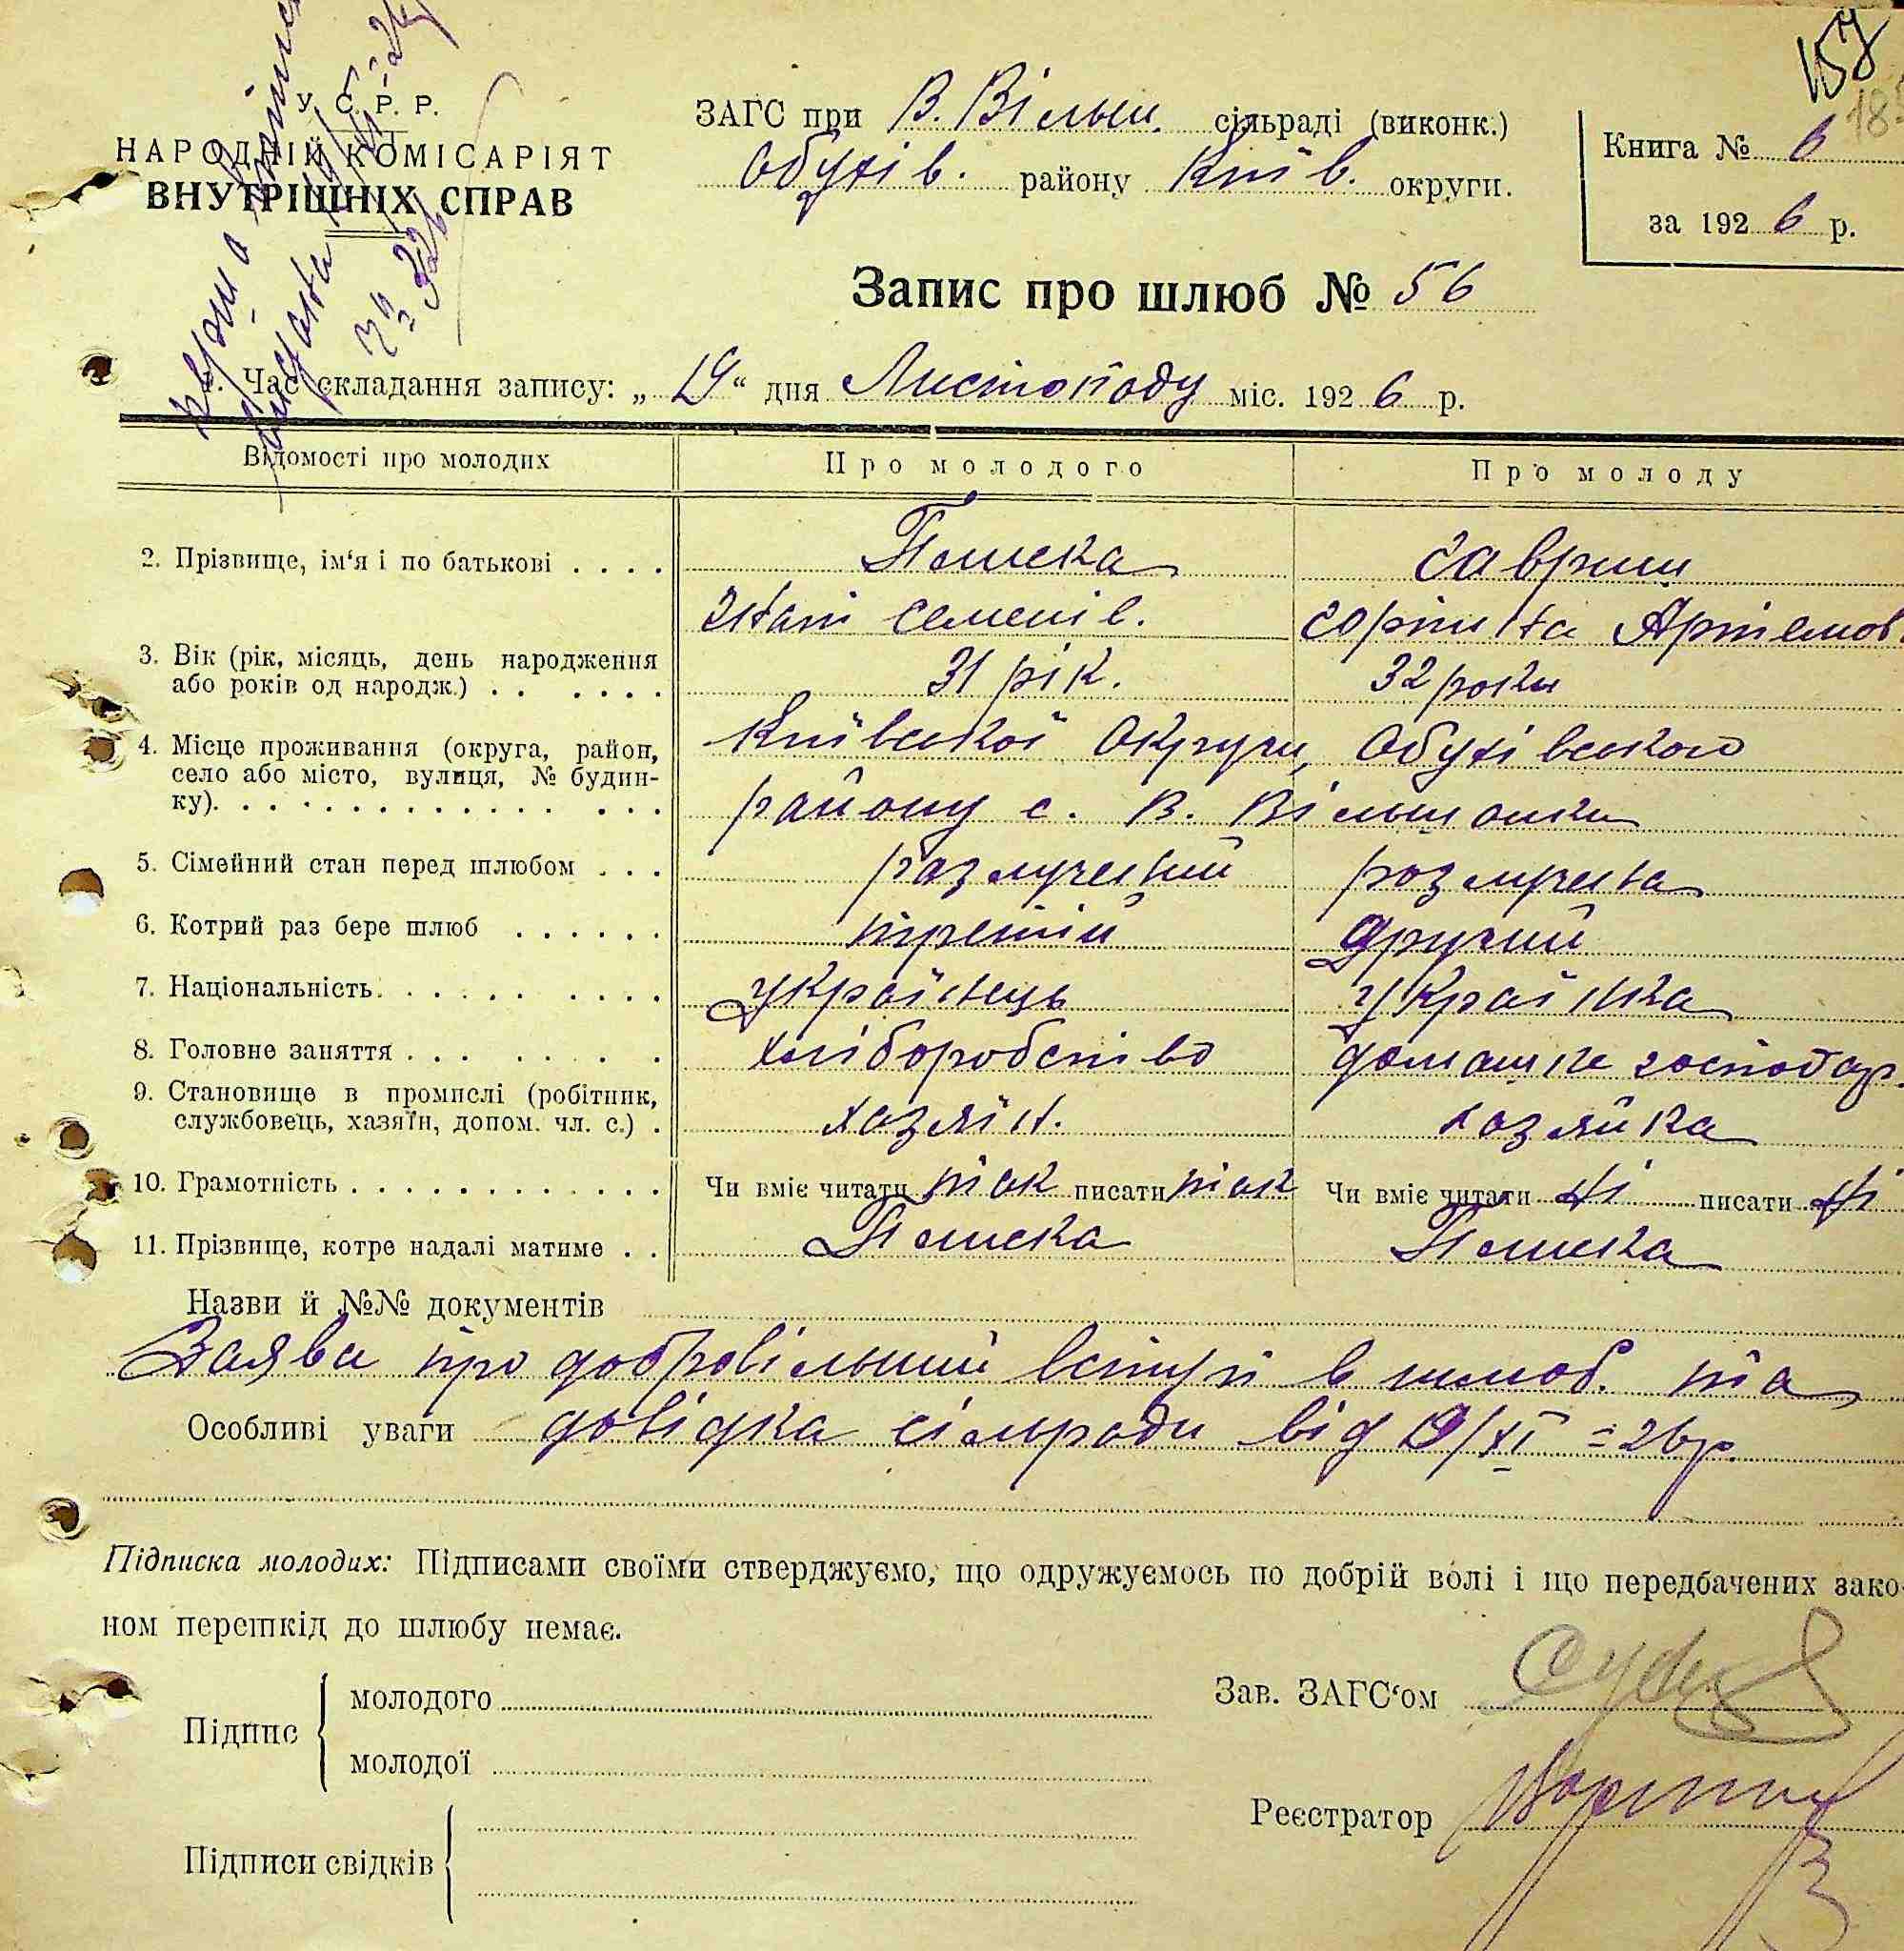 157
У. С. Р. Р.
НАРОДНІЙ КОМІСАРІЯТ
ВНУТРІШНІХ СПРАВ
ЗАГС при В. Вільш. сільраді (виконк.)
Обухів. району Київ. округи.
Книга № 6
за 1926 р.
Запис про шлюб № 56
1. Час складання запису: „19“ дня Листопаду міс. 1926 р.
Відомості про молодих
Про молодого
Про молоду
2. Прізвище, ім‘я і по батькові . . . .
Пешека
Семенів.
Гаврищ
Горпина Артемов.
3. Вік (рік, місяць, день народження
або років од народж.) . . . . . .
31 рік.
32 роки
4. Місце проживання (округа, район,
село або місто, вулиця, № будин-
ку). . . . . . . . . . . . . . .
Київської Округи, Обухівського
району с. В. Вільшанки
5. Сімейний стан перед шлюбом . . .
розлучений
розлучена
6. Котрий раз бере шлюб . . . . . .
третій
другий
7. Національність. . . . . . . . . .
українець
українка
8. Головне заняття . . . . . . . .
хліборобство
домашнє господар.
9. Становище в промислі (робітник,
службовець, хазяїн, допом. чл. с.) .
хазяїн.
хазяйка
10. Грамотність . . . . . . . . . . . .
Чи вміє читати так писати так
Чи вміє читати ні писати ні
11. Прізвище, котре надалі матиме . .
Пешека
Пешека
Назви й №№ документів
Заява про добровільний вступ в шлюб. та
Особливі уваги довідка сільради від 19/XI - 26 р.
Підписка молодих: Підписами своїми стверджуємо, що одружуємось по добрій волі і що передбачених зако-
ном перешкід до шлюбу немає.
Підпис
молодого
молодої
Зав. ЗАГС‘ом
Реєстратор
Підписи свідків